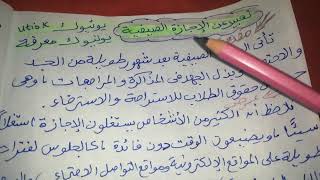 تعبير عن الإجازة الصيفية
يوتيوب utiok
يوتيوب معرفة
مقدمة
تأتي الصيفية بعد شهور طويلة من الجد
والاجتهاد وبذل الجهد في المذاكرة والمراجعات فهي
حق من حقوق الطلاب للاستراحة والاسترخاء
نلاحظ أن الكثير من الأشخاص يستغلون الإجازة استغلالاً
سيئًا ويضيعون الوقت دون فائدة كالجلوس لفترات
طويلة على المواقع الإلكترونية ومواقع التواصل الاجتماعي